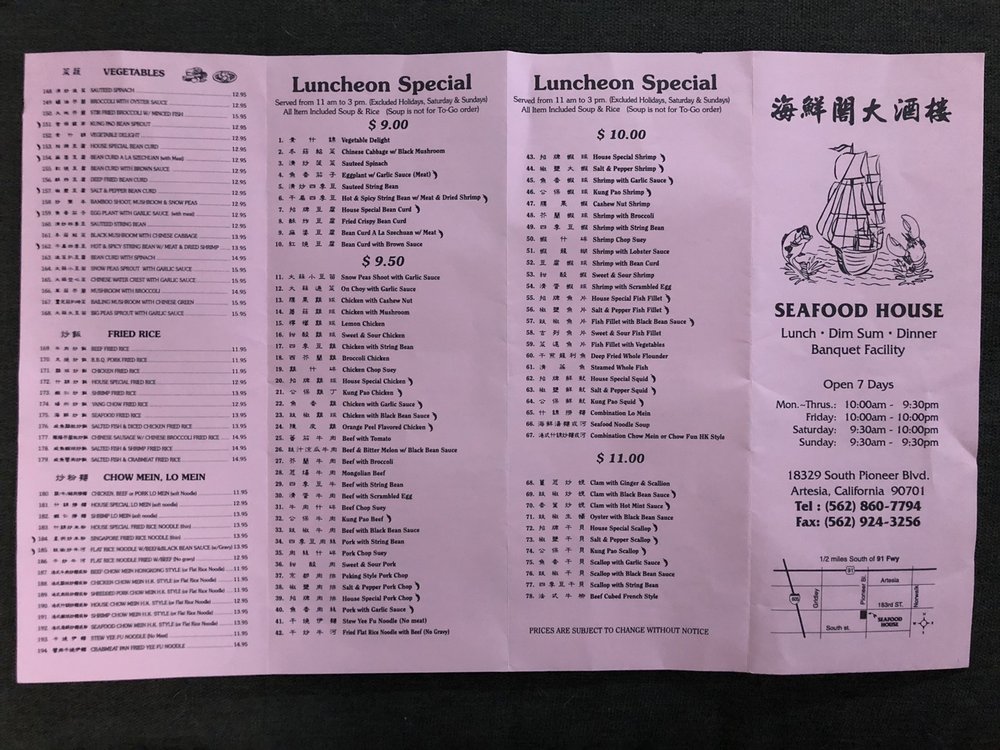 菜蔬 VEGETABLES
148. 清炒菠菜 SAUTEED SPINACH 12.95
149. 蠔油芥蘭 BROCCOLI WITH OYSTER SAUCE 12.95
150. STIR FRIED BROCCOLI W/ MINCED FISH 15.95
151. KUNG PAO BEAN SPROUT 12.95
152. 素什錦 VEGETABLE DELIGHT 12.95
153. 招牌豆腐 HOUSE SPECIAL BEAN CURD 12.95
154. 麻婆豆腐 BEAN CURD A LA SZECHUAN (with Meat) 12.95
155. 紅燒豆腐 BEAN CURD WITH BROWN SAUCE 12.95
156. 酥炸豆腐 DEEP FRIED BEAN CURD 12.95
157. 椒鹽豆腐 SALT & PEPPER BEAN CURD 12.95
158. BAMBOO SHOOT, MUSHROOM & SNOW PEAS 12.95
159. 魚香茄子 EGG PLANT WITH GARLIC SAUCE (with meat) 12.95
160. 清炒四季豆 SAUTEED STRING BEAN 12.95
161. BLACK MUSHROOM WITH CHINESE CABBAGE 13.95
162. 干扁四季豆 HOT & SPICY STRING BEAN W/ MEAT & DRIED SHRIMP 13.95
163. BEAN CURD WITH SPINACH 14.95
164. 大蒜小豆苗 SNOW PEAS SPROUT WITH GARLIC SAUCE 15.95
165. CHINESE WATER CREST WITH GARLIC SAUCE 15.95
166. MUSHROOM WITH BROCCOLI 14.95
167. BAILING MUSHROOM WITH CHINESE GREEN 15.95
168. 大蒜大豆苗 BIG PEAS SPROUT WITH GARLIC SAUCE 15.95
炒飯 FRIED RICE
169. 牛肉炒飯 BEEF FRIED RICE 11.95
170. 叉燒炒飯 B.B.Q. PORK FRIED RICE 11.95
171. 雞球炒飯 CHICKEN FRIED RICE 11.95
172. 什錦炒飯 HOUSE SPECIAL FRIED RICE 12.95
173. 蝦仁炒飯 SHRIMP FRIED RICE 13.95
174. 揚州炒飯 YANG CHOW FRIED RICE 12.95
175. 海鮮炒飯 SEAFOOD FRIED RICE 13.95
176. 咸魚雞粒炒飯 SALTED FISH & DICED CHICKEN FRIED RICE 13.95
177. CHINESE SAUSAGE W/ CHINESE BROCCOLI FRIED RICE 14.95
178. SALTED FISH & SHRIMP FRIED RICE 14.95
179. SALTED FISH & CRABMEAT FRIED RICE 14.95
炒粉麵 CHOW MEIN, LO MEIN
180. CHICKEN, BEEF or PORK LO MEIN (soft Noodle) 11.95
181. 什錦撈麵 HOUSE SPECIAL LO MEIN (soft noodle) 12.95
182. 蝦仁撈麵 SHRIMP LO MEIN (soft noodle) 13.95
183. 什錦炒米粉 HOUSE SPECIAL FRIED RICE NOODLE (thin) 13.95
184. 星洲炒米粉 SINGAPORE FRIED RICE NOODLE (thin) 13.95
185. 豉椒炒牛河 FLAT RICE NOODLE W/BEEF&BLACK BEAN SAUCE (w/Gravy) 13.95
186. 干炒牛河 FLAT RICE NOODLE FRIED W/BEEF (No gravy) 12.95
187. BEEF CHOW MEIN HONGKONG STYLE (or Flat Rice Noodle) 12.95
188. CHICKEN CHOW MEIN H.K. STYLE (or Flat Rice Noodle) 12.95
189. SHREDDED PORK CHOW MEIN H.K. STYLE (or Flat Rice Noodle) 12.95
190. HOUSE CHOW MEIN H.K. STYLE (or Flat Rice Noodle) 12.95
191. SHRIMP CHOW MEIN H.K. STYLE (or Flat Rice Noodle) 13.95
192. SEAFOOD CHOW MEIN H.K. STYLE (or Flat Rice Noodle) 13.95
193. 干燒伊麵 STEW YEE FU NOODLE (No Meat) 11.95
194. CRABMEAT PAN FRIED YEE FU NOODLE 14.95
Luncheon Special
Served from 11 am to 3 pm. (Excluded Holidays, Saturday & Sundays)
All Item Included Soup & Rice (Soup is not for To-Go order)
$ 9.00
1. 素什錦 Vegetable Delight
2. 冬菇 Chinese Cabbage w/ Black Mushroom
3. 清炒菠菜 Sauteed Spinach
4. 魚香茄子 Eggplant w/ Garlic Sauce (Meat)
5. 清炒四季豆 Sauteed String Bean
6. 干扁四季豆 Hot & Spicy String Bean w/ Meat & Dried Shrimp
7. 招牌豆腐 House Special Bean Curd
8. 酥炸豆腐 Fried Crispy Bean Curd
9. 麻婆豆腐 Bean Curd A La Szechuan w/ Meat
10. 紅燒豆腐 Bean Curd with Brown Sauce
$ 9.50
11. 大蒜小豆苗 Snow Peas Shoot with Garlic Sauce
12. 大蒜通菜 On Choy with Garlic Sauce
13. 腰果雞球 Chicken with Cashew Nut
14. 蘑菇雞球 Chicken with Mushroom
15. 檸檬雞球 Lemon Chicken
16. 甜酸雞球 Sweet & Sour Chicken
17. 四季豆雞 Chicken with String Bean
18. 西芥蘭雞 Broccoli Chicken
19. 雞什碎 Chicken Chop Suey
20. 招牌雞球 House Special Chicken
21. 公保雞丁 Kung Pao Chicken
22. 魚香雞 Chicken with Garlic Sauce
23. 豉椒雞球 Chicken with Black Bean Sauce
24. 陳皮雞 Orange Peel Flavored Chicken
25. 蕃茄牛肉 Beef with Tomato
26. 豉汁涼瓜牛肉 Beef & Bitter Melon w/ Black Bean Sauce
27. 芥蘭牛肉 Beef with Broccoli
28. 蔥爆牛肉 Mongolian Beef
29. 四季豆牛 Beef with String Bean
30. 滑蛋牛肉 Beef with Scrambled Egg
31. 牛肉什碎 Beef Chop Suey
32. 公保牛肉 Kung Pao Beef
33. 豉椒牛肉 Beef with Black Bean Sauce
34. 四季豆肉絲 Pork with String Bean
35. 肉絲什碎 Pork Chop Suey
36. 甜酸肉 Sweet & Sour Pork
37. 京都肉排 Peking Style Pork Chop
38. 椒鹽肉排 Salt & Pepper Pork Chop
39. 招牌肉排 House Special Pork Chop
40. 魚香肉絲 Pork with Garlic Sauce
41. 干燒伊麵 Stew Yee Fu Noodle (No meat)
42. 干炒牛河 Fried Flat Rice Noodle with Beef (No Gravy)
Luncheon Special
Served from 11 am to 3 pm. (Excluded Holidays, Saturday & Sundays)
All Item Included Soup & Rice (Soup is not for To-Go order)
$ 10.00
43. 招牌蝦球 House Special Shrimp
44. 椒鹽大蝦 Salt & Pepper Shrimp
45. 魚香蝦球 Shrimp with Garlic Sauce
46. 公保蝦球 Kung Pao Shrimp
47. 腰果蝦 Cashew Nut Shrimp
48. 芥蘭蝦球 Shrimp with Broccoli
49. 四季豆蝦 Shrimp with String Bean
50. 蝦什碎 Shrimp Chop Suey
51. 蝦龍糊 Shrimp with Lobster Sauce
52. 豆腐蝦球 Shrimp with Bean Curd
53. 甜酸蝦 Sweet & Sour Shrimp
54. 滑蛋蝦球 Shrimp with Scrambled Egg
55. 招牌魚片 House Special Fish Fillet
56. 椒鹽魚片 Salt & Pepper Fish Fillet
57. 豉椒魚片 Fish Fillet with Black Bean Sauce
58. 古列魚片 Sweet & Sour Fish Fillet
59. 菜遠魚片 Fish Fillet with Vegetables
60. 干煎龍利魚 Deep Fried Whole Flounder
61. 清蒸魚 Steamed Whole Fish
62. 招牌鮮魷 House Special Squid
63. 椒鹽鮮魷 Salt & Pepper Squid
64. 公保鮮魷 Kung Pao Squid
65. 什錦撈麵 Combination Lo Mein
66. 海鮮湯麵或河 Seafood Noodle Soup
67. 港式什錦炒麵或河 Combination Chow Mein or Chow Fun HK Style
$ 11.00
68. 薑蔥炒蜆 Clam with Ginger & Scallion
69. 豉椒炒蜆 Clam with Black Bean Sauce
70. 香辣炒蜆 Clam with Hot Mint Sauce
71. 豉椒生蠔 Oyster with Black Bean Sauce
72. 招牌干貝 House Special Scallop
73. 椒鹽干貝 Salt & Pepper Scallop
74. 公保干貝 Kung Pao Scallop
75. 魚香干貝 Scallop with Garlic Sauce
76. 豉椒干貝 Scallop with Black Bean Sauce
77. 四季豆干貝 Scallop with String Bean
78. 法式牛柳 Beef Cubed French Style
PRICES ARE SUBJECT TO CHANGE WITHOUT NOTICE
海鮮閣大酒樓
SEAFOOD HOUSE
Lunch • Dim Sum • Dinner
Banquet Facility
Open 7 Days
Mon.~Thrus.: 10:00am - 9:30pm
Friday: 10:00am - 10:00pm
Saturday: 9:30am - 10:00pm
Sunday: 9:30am - 9:30pm
18329 South Pioneer Blvd.
Artesia, California 90701
Tel : (562) 860-7794
Fax: (562) 924-3256
1/2 miles South of 91 Fwy
91
605
Gridley
Pioneer Bl.
Artesia
Norwalk
183rd ST.
South st.
SEAFOOD HOUSE